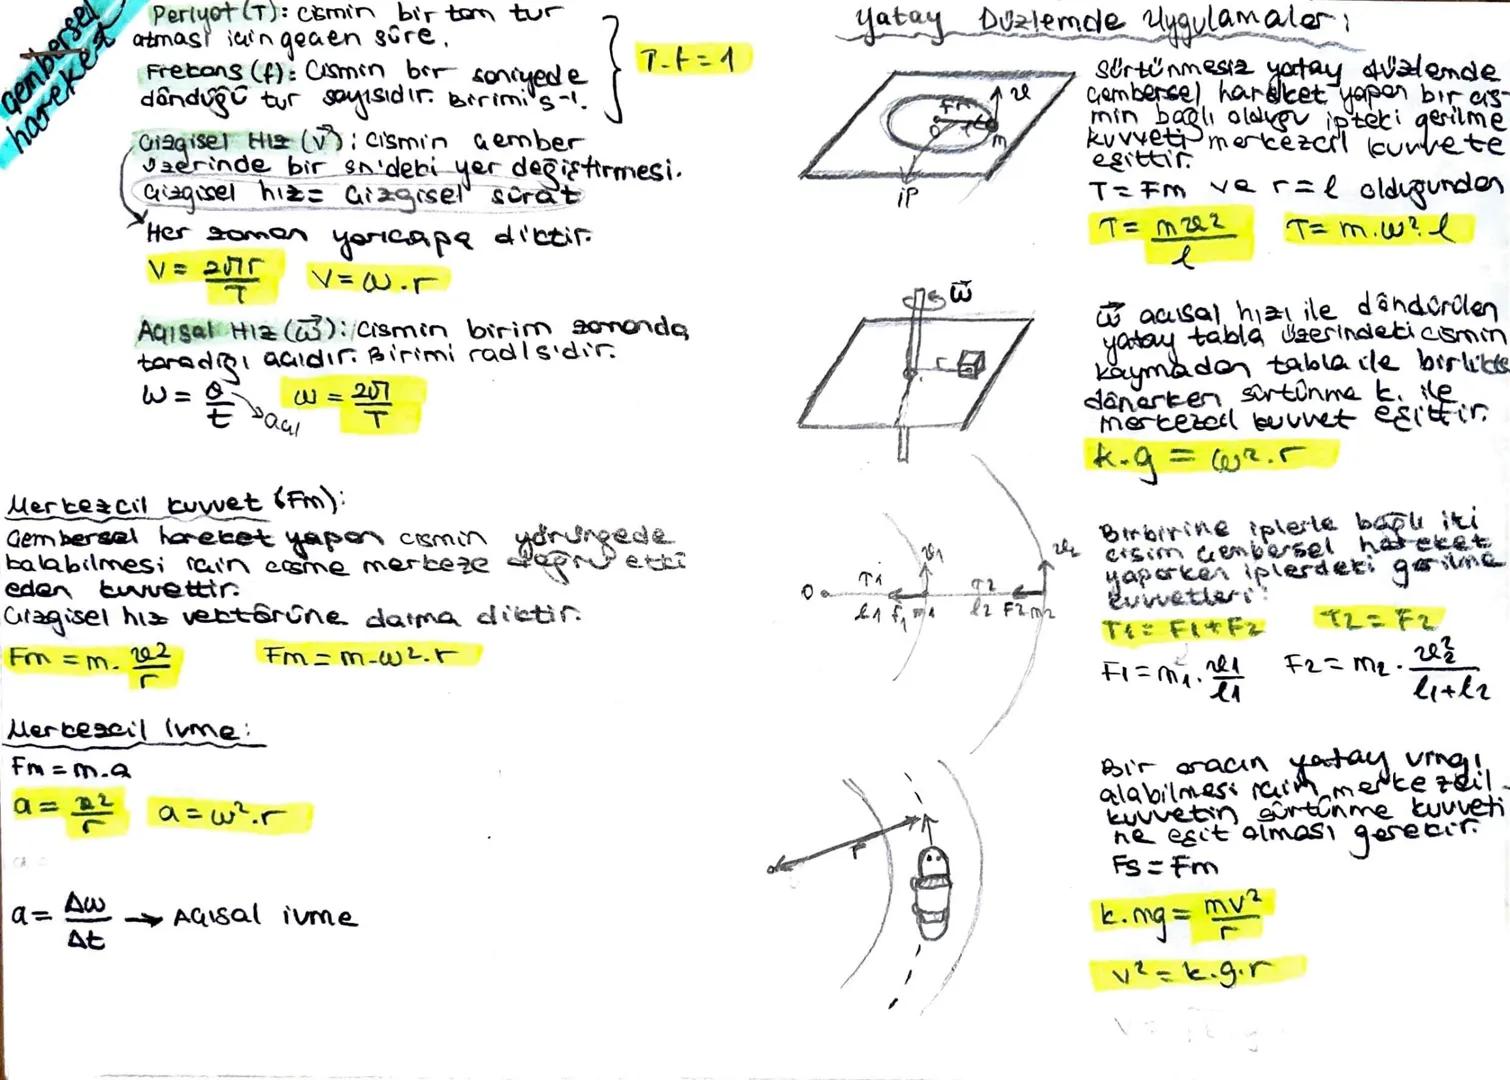 Çembersel hareket
Periyot (T): Cismin bir tam tur
atması için geçen süre.
Frekans (f): Cismin bir saniyede
döndüğü tur sayısıdır. Birimi s⁻¹.
T.f = 1
Çizgisel Hız (v⃗): Cismin çember
üzerinde bir sn'deki yer değiştirmesi.
Çizgisel hız = Çizgisel sürat
Her zaman yarıçapa diktir.
V = 2πr/T V = ω.r
Açısal Hız (ω⃗): Cismin birim zamanda
taradığı açıdır. Birimi rad/s'dir.
ω = θ/t → açı ω = 2π/T
Merkezcil kuvvet (Fm):
Çembersel hareket yapan cismin yörüngede
kalabilmesi için cisme merkeze doğru etki
eden kuvvettir.
Çizgisel hız vektörüne daima diktir.
Fm = m. v²/r Fm = m.ω².r
Merkezcil İvme:
Fm = m.a
a = v²/r a = ω².r
a = Δω/Δt → Açısal ivme
Yatay Düzlemde Uygulamalar:
Fm v
O m
ip
Sürtünmesiz yatay düzlemde
çembersel hareket yapan bir cis-
min bağlı olduğu ipteki gerilme
kuvveti merkezcil kuvvete
eşittir.
T = Fm ve r = l olduğundan
T = mv²/l T = m.ω².l
ω⃗
r
ω⃗ açısal hızı ile döndürülen
yatay tabla üzerindeki cismin
kaymadan tabla ile birlikte
dönerken sürtünme k. ile
merkezcil kuvvet eşittir.
k.g = ω².r
v1 v2
O T1 T2
l1 F1 m1 l2 F2 m2
Birbirine iplerle bağlı iki
cisim çembersel hareket
yaparken iplerdeki gerilme
kuvvetleri:
T1 = F1 + F2 T2 = F2
F1 = m1. v1/l1 F2 = m2. v2²/l1+l2
r
Bir aracın yatay virajı
alabilmesi için merkezcil
kuvvetin sürtünme kuvveti
ne eşit olması gerekir.
Fs = Fm
k.mg = mv²/r
v² = k.g.r